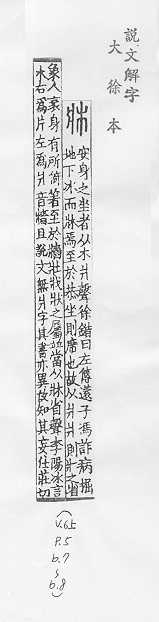 說文解字
大徐本
牀
安身之坐者从木爿聲徐鍇曰左傳薳子馮詐病掘
地下冰而牀焉至於恭坐則席也故从爿爿則爿之省
象人衺身有所倚著至於牆壯戕狀之屬並當从牀省聲李陽冰言
木右爲片左爲爿音牆且說文無爿字其書亦異故知其妄仕莊切
(V.65
P.5
b.7
~
b.8)